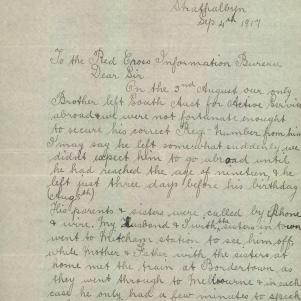 Strathalbyn
Sep 4th 1917
To the Red Cross Information Bureau
Dear Sir
On the 3rd August our only
Brother left South Aust for Active Service
abroad & we were not fortunate enough
to secure his correct Reg. Number from his
I may say he left somewhat suddenly we
didnt expect him to go abroad until
he had reached the age of nineteen, & he
left just three days before his birthday
Aug 6th)
His parents & sisters were called by Phone
& wire. My Husband & I with sisters in town
went to Mitcham station to see him off
while Mother & Father with the sisters at
home met the train at Bordertown as
they went through to Melbourne & in each
case he only had a few minutes to speak